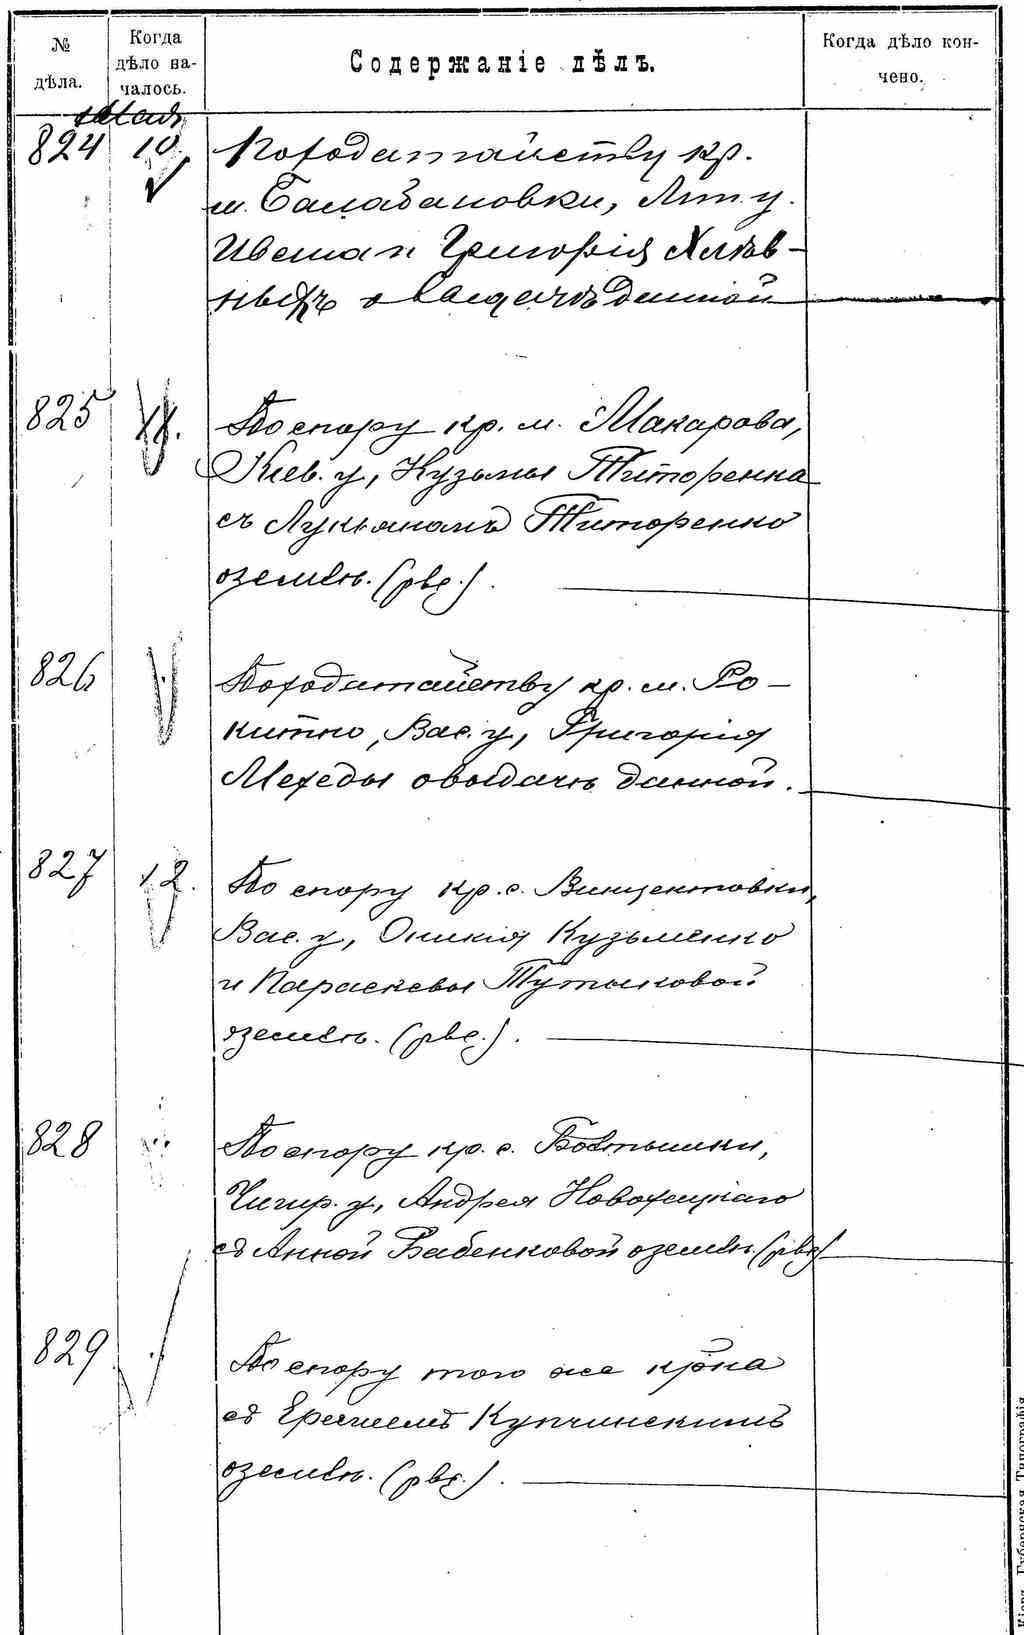 № дѣла.
Когда дѣло началось.
Содержаніе дѣлъ.
Когда дѣло кончено.
мая
824 10 По ходатайству кр.
м. Балабановки, Лип. у.
Ивана и Григорія Хлѣв-
ныхъ о выдачѣ данной
825 11. По спору кр. м. Макарова,
Кіев. у, Кузьмы Титоренка
съ Лукьяномъ Титоренко
о землѣ. (рвс.).
826 По ходатайству кр. м. Ро-
китно, Вас. у, Григорія
Мехеды о выдачѣ данной.
827 12. По спору кр. с. Винцентовки,
Вас. у, Оникія Кузьменко
и Параскевы Тутыковой
о землѣ. (рвс.).
828 По спору кр. с. Бовтышки,
Чигир. у, Андрея
съ Анной Бабенковой о землѣ. (рвс)
829 По спору того же кр-на
съ Купчинскимъ
о землѣ. (рвс.).
Кіевъ. Губернская Типографія